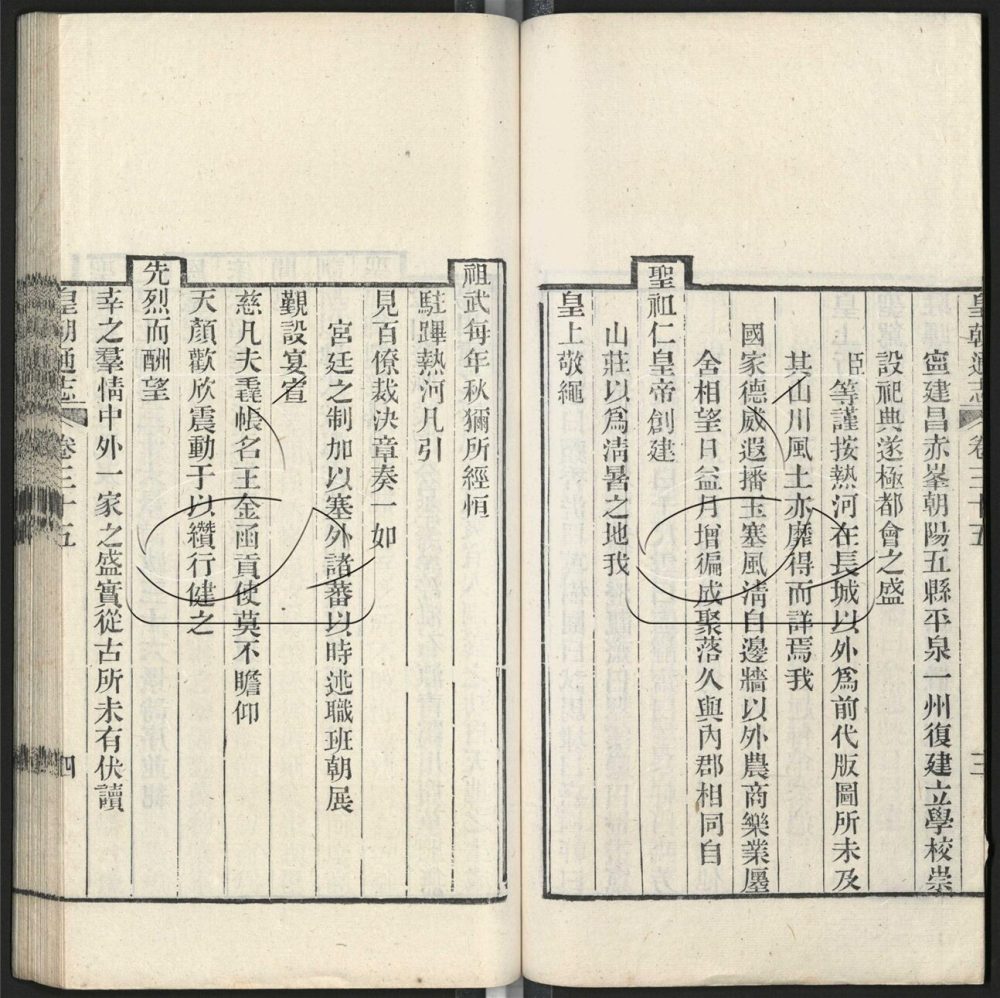 皇朝通志 卷三十五 三
寧建昌赤峯朝陽五縣平泉一州復建立學校崇
設祀典遂極都會之盛
臣等謹按熱河在長城以外爲前代版圖所未及
其山川風土亦靡得而詳焉我
國家德威遐播玉塞風淸自邊牆以外農商樂業廛
舍相望日益月增徧成聚落久與內郡相同自
聖祖仁皇帝創建
山莊以爲淸暑之地我
皇上敬繩
祖武每年秋獮所經恒
駐蹕熱河凡引
見百僚裁決章奏一如
宮廷之制加以塞外諸蕃以時述職班朝展
覲設宴宥
慈凡夫毳帳名王金函貢使莫不瞻仰
天顏歡欣震動于以纘行健之
先烈而酬望
幸之羣情中外一家之盛實從古所未有伏讀
皇朝通志 卷三十五 四